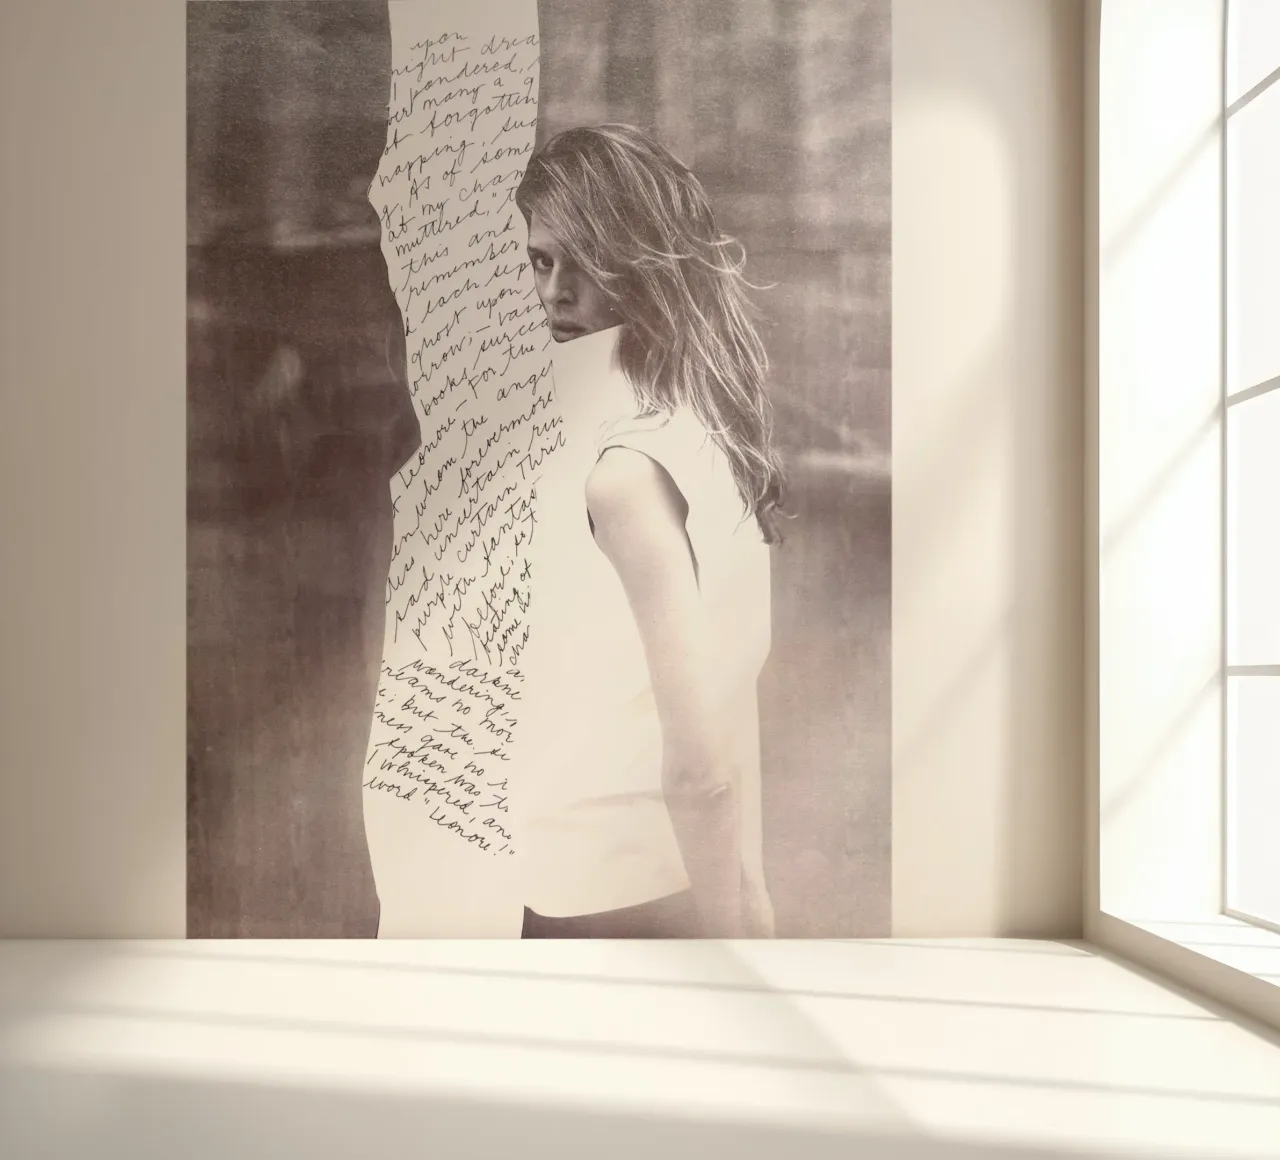 upon
night drea
pondered,
ver many a q
ot forgotten
napping, sud
g, As of some
at my cham
muttered, " t
this and
remember
d each sep
ghost upon
orrow; – vain
books surcea
– For the
Leonore – the angel
whom forevermore
en here
less uncertain rus
sad curtain Thril
purple fantas
with
before; so t
beating of
some
cha
a
darkne
wondering,
reams no mor
e; But the si
ness gave no
spoken was
I whispered, an
word "Leonore!"